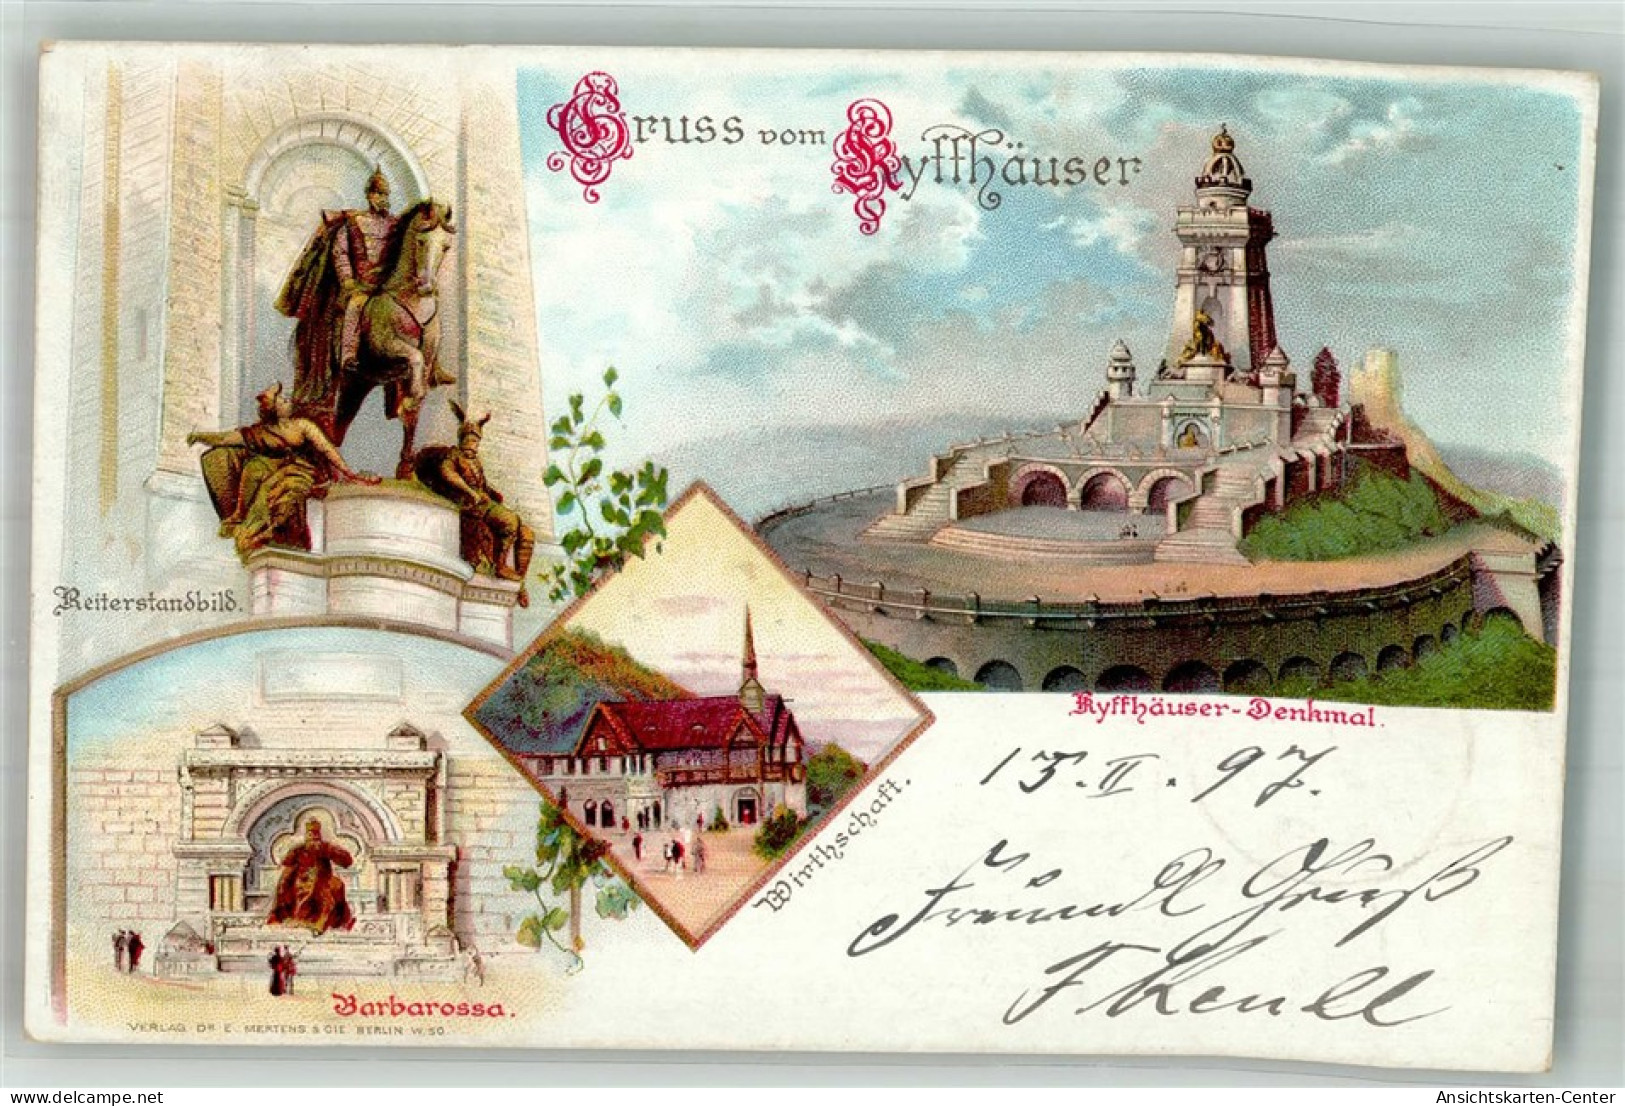 Gruss vom Kyffhäuser
Reiterstandbild.
Kyffhäuser-Denkmal.
15. II. 97.
Wirthschaft.
Freundl Gruß
Barbarossa.
VERLAG DR E. MERTENS & CIE BERLIN W. 50
www.delcampe.net
Ansichtskarten-Center